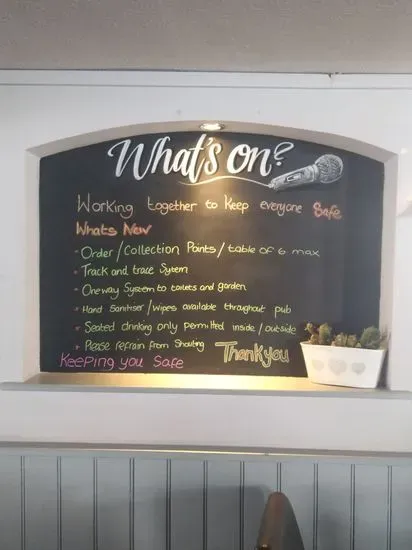 What's on?
Working together to Keep everyone Safe
Whats New
- Order / Collection Points / table of 6 max
- Track and trace System
- One way System to toilets and garden
- Hand Sanitiser / Wipes available throughout pub
- Seated drinking only permitted inside / outside
- Please refrain from Shouting
Thankyou
Keeping you Safe